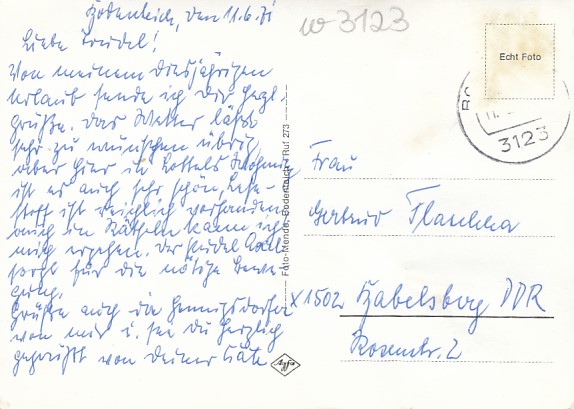 Bodenteich, den 11.6.71
w 3123
Liebe Trudel!
Von meinem diesjährigen
Urlaub sende ich Dir herzl.
Grüße. Das Wetter läßt
sehr zu wünschen übrig,
aber hier in Lottels Wohnung
ist es auch sehr schön, Lese-
stoff ist reichlich vorhanden
auch im Rätseln kann ich
mich ergehen. Der Pudel Axel
sorgt für die nötige Bewe-
gung.
Grüße auch die Hennigsdorfer
von mir u. sei Du herzlich
gegrüßt von Deiner Käte
Foto-Mende, Bodenteich · Ruf 273
Agfa
Echt Foto
3123
Frau
Gertrud
X 1502 Babelsberg DDR
Rosenstr. 2